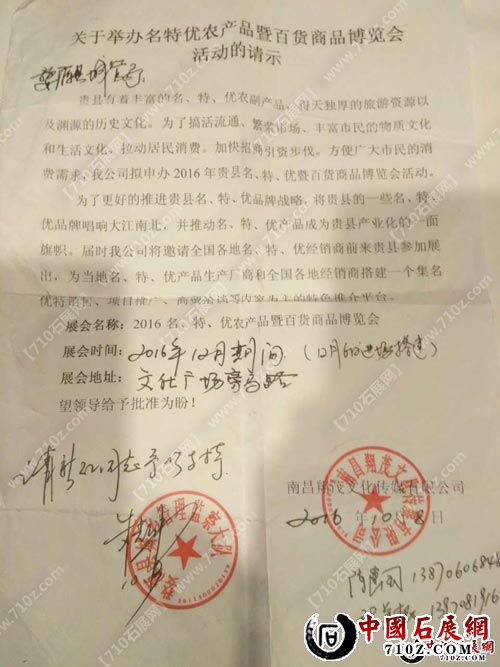 关于举办名特优农产品暨百货商品博览会
活动的请示
婺源县城管局
贵县有着丰富的名、特、优农副产品，得天独厚的旅游资源以
及渊源的历史文化。为了搞活流通、繁荣市场、丰富市民的物质文化
和生活文化，拉动居民消费。加快招商引资步伐。方便广大市民的消
费需求，我公司拟申办 2016 年贵县名、特、优暨百货商品博览会活动。
为了更好的推进贵县名、特、优品牌战略，将贵县的一些名，特、
优品牌唱响大江南北，并推动名、特、优产品成为贵县产业化的一面
旗帜。届时我公司将邀请全国各地名、特、优经销商前来贵县参加展
出，为当地名、特、优产品生产厂商和全国各地经销商搭建一个集名
优特销售、项目推广、商贸洽谈等内容为主的特色推介平台。
展会名称：2016 名、特、优农产品暨百货商品博览会
展会时间：2016年12月期间（12月6日进场搭建）
展会地址：文化广场旁马路
望领导给予批准为盼！
同志予以支持
南昌翔茂文化传媒有限公司
2016 年 10 月 8 日
南昌翔茂文化传媒有限公司
管理监察大队
中國石展網
www.710z.com
[710石展网]
www.710z.com